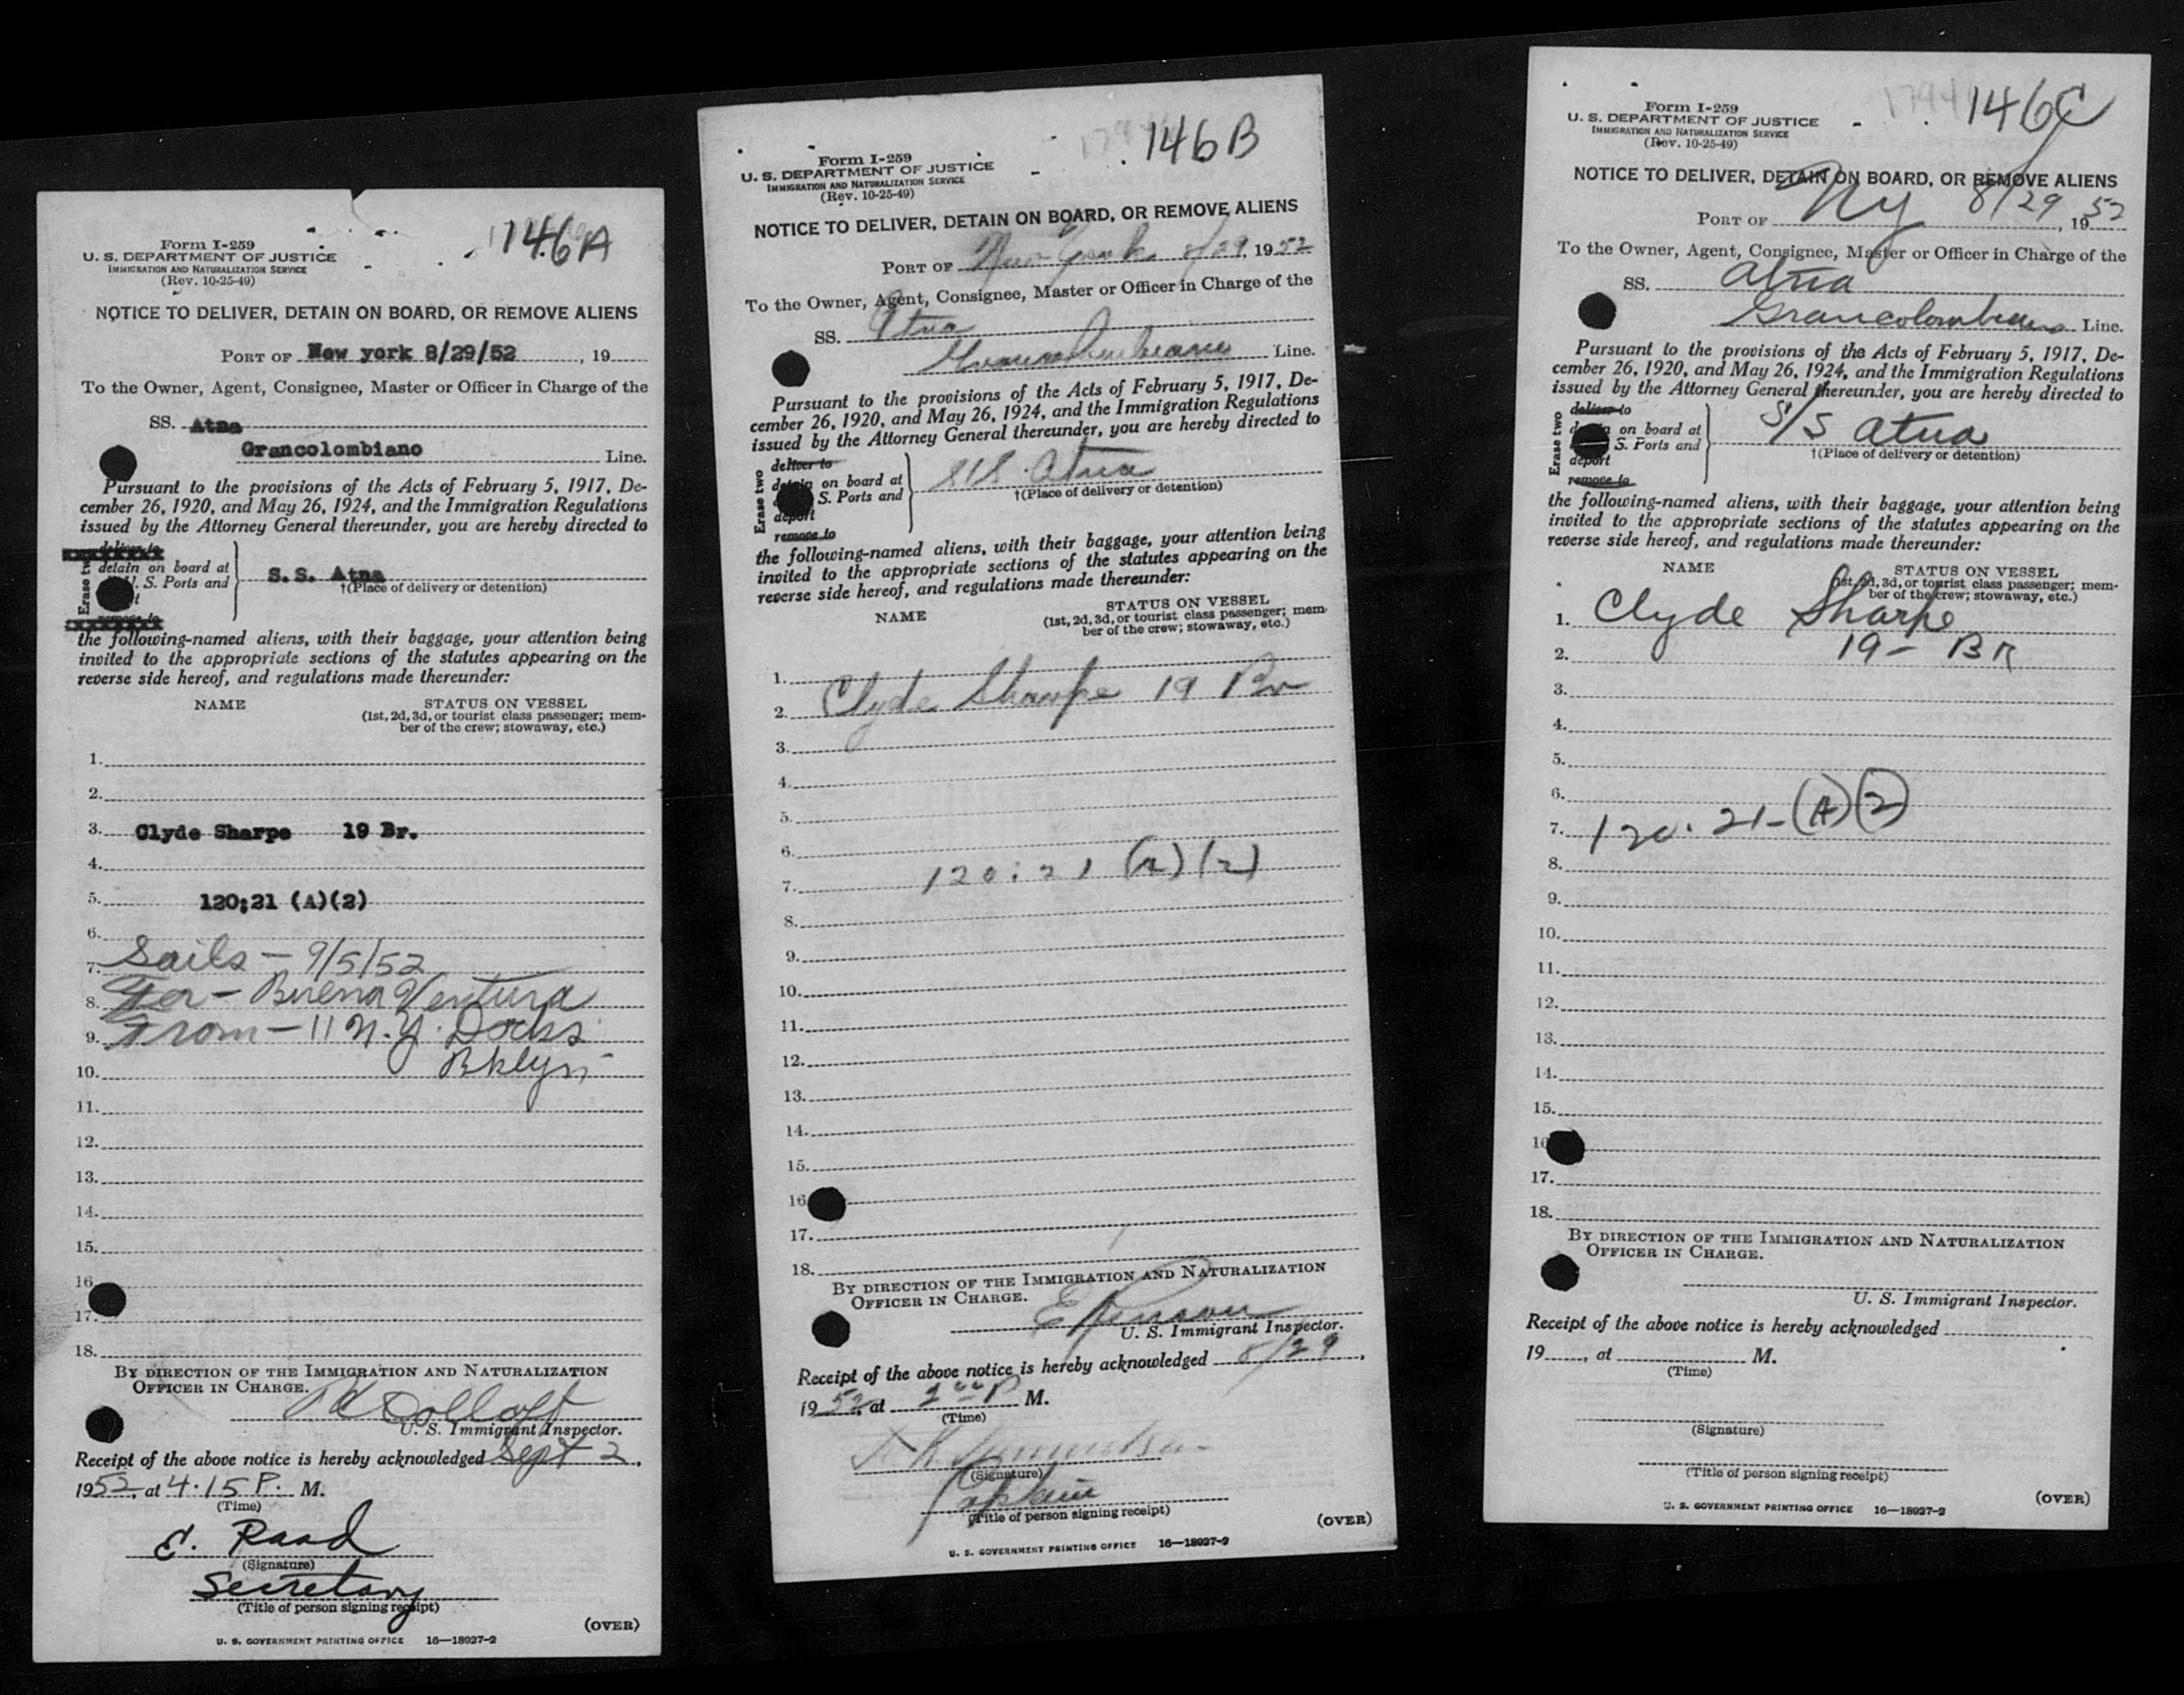 146A
Form I-259
U. S. DEPARTMENT OF JUSTICE
IMMIGRATION AND NATURALIZATION SERVICE
(Rev. 10-25-49)
NOTICE TO DELIVER, DETAIN ON BOARD, OR REMOVE ALIENS
PORT OF New york 8/29/52, 19
To the Owner, Agent, Consignee, Master or Officer in Charge of the
SS. Atna
Grancolombiano Line.
Pursuant to the provisions of the Acts of February 5, 1917, De-
cember 26, 1920, and May 26, 1924, and the Immigration Regulations
issued by the Attorney General thereunder, you are hereby directed to
Erase tw
deliver to
detain on board at
U. S. Ports and
remove to
S.S. Atna
†(Place of delivery or detention)
the following-named aliens, with their baggage, your attention being
invited to the appropriate sections of the statutes appearing on the
reverse side hereof, and regulations made thereunder:
NAME STATUS ON VESSEL
(1st, 2d, 3d, or tourist class passenger; mem-
ber of the crew; stowaway, etc.)
1.
2.
3. Clyde Sharpe 19 Br.
4.
5. 120;21 (A)(2)
6.
7. Sails - 9/5/52
8. For - Buena Ventura
9. From - 11 N.Y. Docks
10. Bklyn
11.
12.
13.
14.
15.
16.
17.
18.
BY DIRECTION OF THE IMMIGRATION AND NATURALIZATION
OFFICER IN CHARGE.
U. S. Immigrant Inspector.
Receipt of the above notice is hereby acknowledged Sept 2,
1952, at 4.15 P. M.
(Time)
E. Raad
(Signature)
Secretary
(Title of person signing receipt)
(OVER)
U. S. GOVERNMENT PRINTING OFFICE 16—18927-2
146B
Form I-259
U. S. DEPARTMENT OF JUSTICE
IMMIGRATION AND NATURALIZATION SERVICE
(Rev. 10-25-49)
NOTICE TO DELIVER, DETAIN ON BOARD, OR REMOVE ALIENS
PORT OF New York 8/29, 1952
To the Owner, Agent, Consignee, Master or Officer in Charge of the
SS. Atna
Line.
Pursuant to the provisions of the Acts of February 5, 1917, De-
cember 26, 1920, and May 26, 1924, and the Immigration Regulations
issued by the Attorney General thereunder, you are hereby directed to
Erase two
deliver to
detain on board at
S. Ports and
deport
remove to
S/S Atna
†(Place of delivery or detention)
the following-named aliens, with their baggage, your attention being
invited to the appropriate sections of the statutes appearing on the
reverse side hereof, and regulations made thereunder:
NAME STATUS ON VESSEL
(1st, 2d, 3d, or tourist class passenger; mem-
ber of the crew; stowaway, etc.)
1.
2. Clyde Sharpe 19 Br
3.
4.
5.
6.
7. 120:21 (a)(2)
8.
9.
10.
11.
12.
13.
14.
15.
16
17.
18.
BY DIRECTION OF THE IMMIGRATION AND NATURALIZATION
OFFICER IN CHARGE.
U. S. Immigrant Inspector.
Receipt of the above notice is hereby acknowledged 8/29,
1952, at P M.
(Time)
(Signature)
Captain
(Title of person signing receipt)
(OVER)
U. S. GOVERNMENT PRINTING OFFICE 16—18927-2
146C
Form I-259
U. S. DEPARTMENT OF JUSTICE
IMMIGRATION AND NATURALIZATION SERVICE
(Rev. 10-25-49)
NOTICE TO DELIVER, DETAIN ON BOARD, OR REMOVE ALIENS
PORT OF NY 8/29, 1952
To the Owner, Agent, Consignee, Master or Officer in Charge of the
SS. Atna
Grancolombiano Line.
Pursuant to the provisions of the Acts of February 5, 1917, De-
cember 26, 1920, and May 26, 1924, and the Immigration Regulations
issued by the Attorney General thereunder, you are hereby directed to
Erase two
deliver to
on board at
S. Ports and
deport
remove to
S/S Atna
†(Place of delivery or detention)
the following-named aliens, with their baggage, your attention being
invited to the appropriate sections of the statutes appearing on the
reverse side hereof, and regulations made thereunder:
NAME STATUS ON VESSEL
(1st, 2d, 3d, or tourist class passenger; mem-
ber of the crew; stowaway, etc.)
1. Clyde Sharpe
2. 19 - BR
3.
4.
5.
6.
7. 120. 21-(A)(2)
8.
9.
10.
11.
12.
13.
14.
15.
16
17.
18.
BY DIRECTION OF THE IMMIGRATION AND NATURALIZATION
OFFICER IN CHARGE.
U. S. Immigrant Inspector.
Receipt of the above notice is hereby acknowledged
19, at M.
(Time)
(Signature)
(Title of person signing receipt)
(OVER)
U. S. GOVERNMENT PRINTING OFFICE 16—18927-2